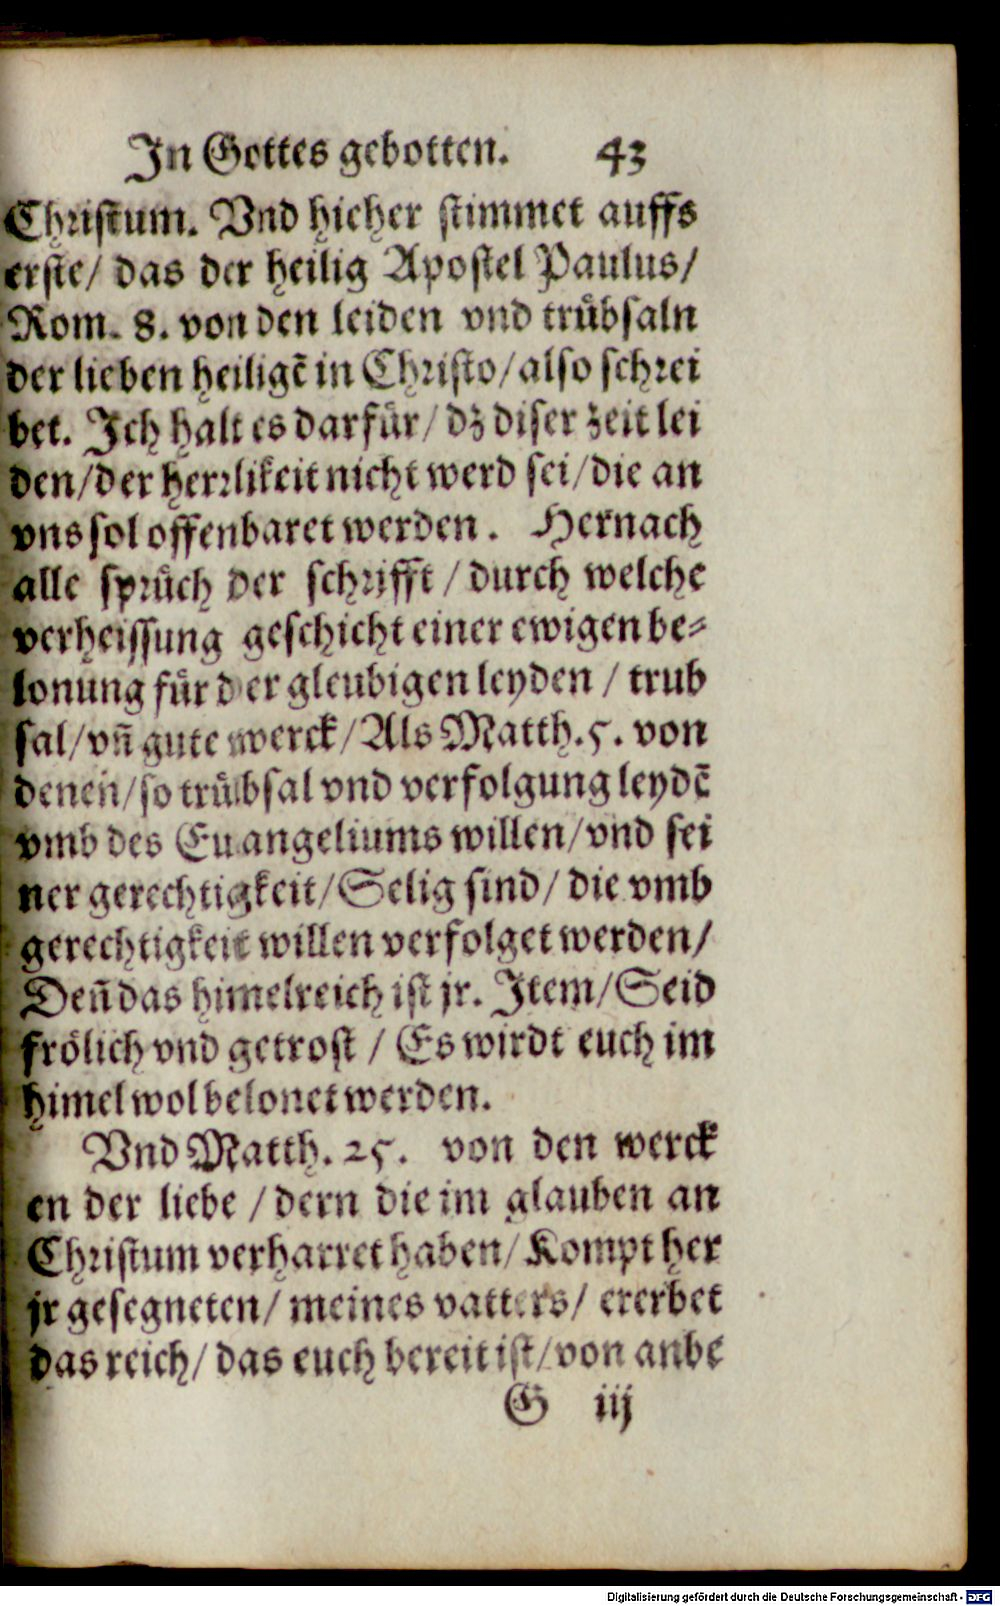 In Gottes gebotten. 43
Christum. Vnd hieher stimmet auffs
erste/ das der heilig Apostel Paulus/
Rom. 8. von den leiden vnd trůbsaln
der lieben heiligẽ in Christo/ also schrei
bet. Ich halt es darfůr/ dz diser zeit lei
den/ der herrlikeit nicht werd sei/ die an
vns sol offenbaret werden. Hernach
alle sprůch der schrifft/ durch welche
verheissung geschicht einer ewigen be-
lonung fůr der gleubigen leyden/ trub
sal/ vñ gute werck/ Als Matth. 5. von
denen/ so trůbsal vnd verfolgung leydẽ
vmb des Euangeliums willen/ vnd sei
ner gerechtigkeit/ Selig sind/ die vmb
gerechtigkeit willen verfolget werden/
Deñ das himelreich ist jr. Item/ Seid
frölich vnd getrost/ Es wirdt euch im
himel wol belonet werden.
Vnd Matth. 25. von den werck
en der liebe/ dern die im glauben an
Christum verharret haben/ Kompt her
jr gesegneten/ meines vatters/ ererbet
das reich/ das euch bereit ist/ von anbe
G iij
Digitalisierung gefördert durch die Deutsche Forschungsgemeinschaft - DFG